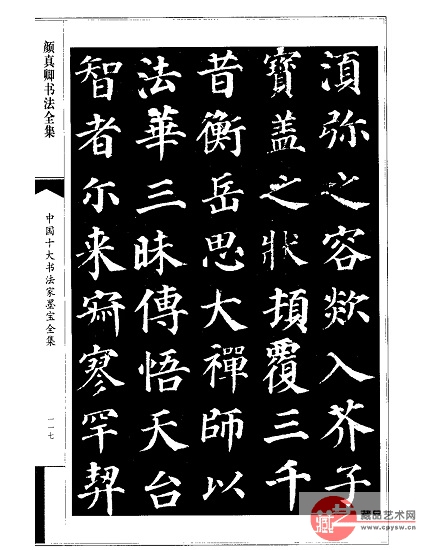 須弥之容欻入芥子
寶盖之狀頓覆三千
昔衡岳思大禪師以
法華三昧傳悟天台
智者尓来寂寥罕契
颜真卿书法全集
中国十大书法家墨宝全集
一一七
藏品艺术网
www.cpysw.cn